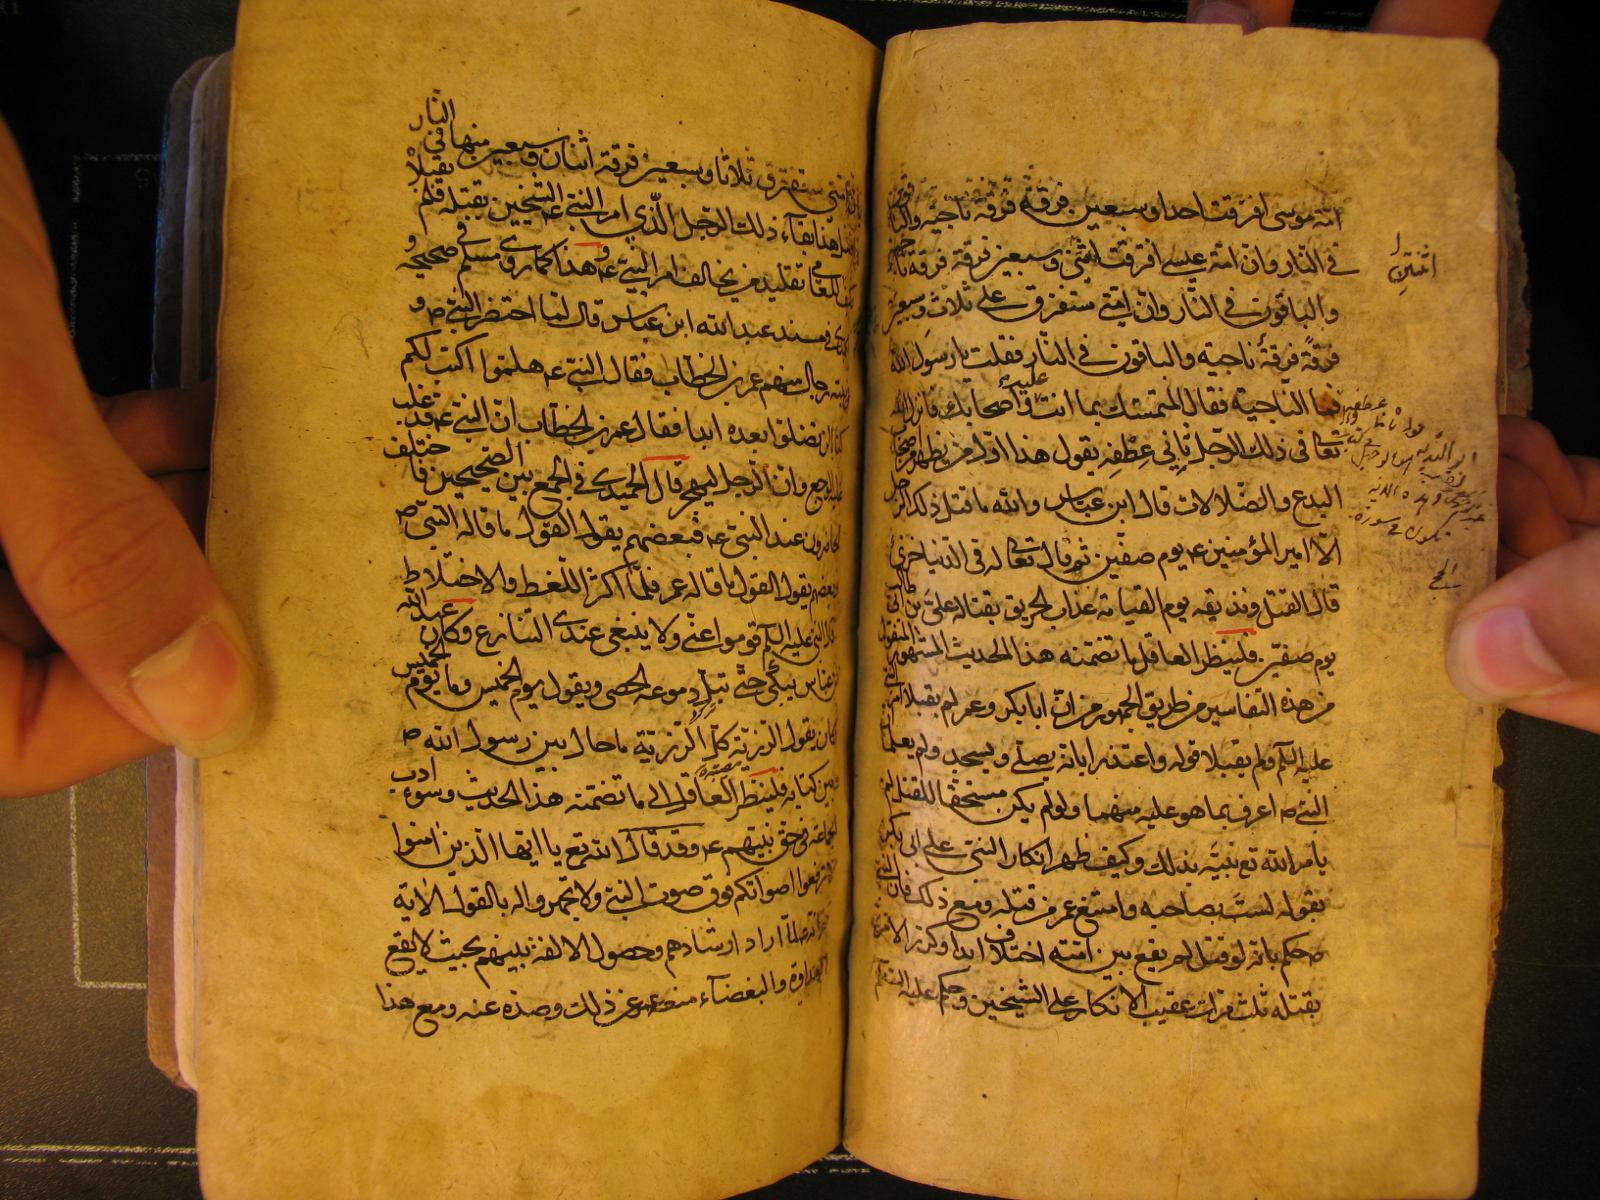 امة موسى افترقت احدا وسبعين فرقة فرقة ناجية والباقون
في النار وان امة عيسى افترقت اثنتين وسبعين فرقة فرقة ناجية
والباقون في النار وان امتي ستفترق على ثلاث وسبعين
فرقة فرقة ناجية والباقون في النار فقلت يا رسول الله
فما الناجية فقال المتمسك بما انت عليه واصحابك فانزل الله
تعالى في ذلك الرجل ثاني عطفه يقول هذا اول من يظهر من اصحاب
البدع والضلالات قال ابن عباس والله ما قتل ذلك الرجل
الا امير المؤمنين ع يوم صفين ثم قال تعالى له في الدنيا خزي
قال القتل ونذيقه يوم القيامة عذاب الحريق بقتاله علي بن ابي طالب
يوم صفين فلينظر العاقل ما تضمنه هذا الحديث المشهور المنقول
من هذه التفاسير من طريق الجمهور من ان ابا بكر وعمر لم يقبلا امر
عليه السلم ولم يقبلا قوله واعتذرا بانه يصلي ويسجد ولم يعلما
النبي ص اعرف بما هو عليه منهما ولو لم يكن مستحقا للقتل لم
يامر الله تع نبيه بذلك وكيف ظهر انكار النبي على ابي بكر
بقوله لست بصاحبه وامتنع عمر من قتله ومع ذلك فان النبي
ص حكم بانه لو قتل لم يقع بين امته اختلاف ابدا وكرر الامر
بقتله ثلث مرات عقيب الانكار على الشيخين وحكم عليه السلم
اثنتين
الحج
امتي ستفترق ثلاثا وسبعين فرقة اثنان وسبعين منها في النار
اصل هذا بقاء ذلك الرجل الذي امر النبي ع الشيخين بقتله فلم يقبلا
فكيف للعامي تقليد من يخالف امر النبي ع وهذا كما روى مسلم في صحيحه و
في مسند عبد الله ابن عباس قال لما احتضر النبي ص و
بيته رجال منهم عمر بن الخطاب فقال النبي ع هلموا اكتب لكم
كتابا لن تضلوا بعده ابدا فقال عمر بن الخطاب ان النبي ع قد غلب
عليه الوجع وان الرجل ليهجر قال الحميدي في الجمع بين الصحيحين فاختلف
الحاضرون عند النبي ع فبعضهم يقول القول ما قاله النبي ص
وبعضهم يقول القول ما قاله عمر فلما اكثر اللغط والاختلاط
قال النبي عليه السلم قوموا عني ولا ينبغي عندي التنازع وكان عبد الله
بن عباس يبكي حتى تبل دموعه الحصى ويقول يوم الخميس وما يوم الخميس
كان يقول الرزية كل الرزية ما حال بين رسول الله ص
وبين كتابه فلينظر العاقل الى ما تضمنه هذا الحديث وسوء ادب
الجماعة في حق نبيهم ع وقد قال الله تع يا ايها الذين امنوا
لا ترفعوا اصواتكم فوق صوت النبي ولا تجهروا له بالقول الاية
لما اراد ارشادهم وحصول الالفة بينهم بحيث لا يقع
العداوة والبغضاء منعه عمر عن ذلك وصده عنه ومع هذا